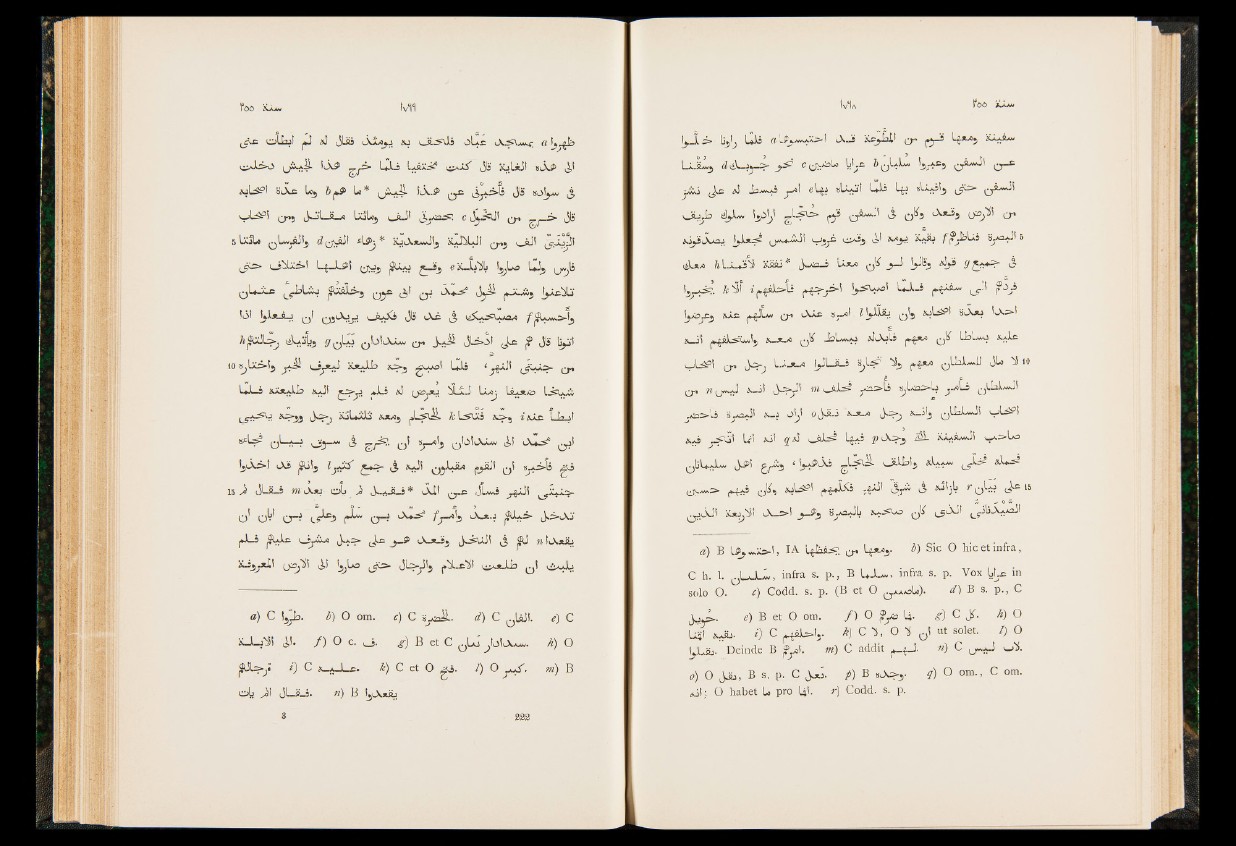 سنة ٢٥٥
١٧٩٨
سفينة ومعها قوم من المطّوّعة قد احتمسوها a فلمّا راونا خلّوا
عن السفن وعبروا سلبان b عراة ماضين c نحو جوبك d وسقنا
السفن حتى وافيناه بها فلمّا اتيناه بها e امر فبسط له على نشز
من الارض وقعد وكان في السفن قوم حجّاج ارادوا سلوك طريق
5 البصرة فناظرهم f بقيّة يومه الى وقت غروب الشمس فجعلوا يصدقونه
في جميع g قوله وقالوا لو كان معنا فضل *نفقة لأقمنا h معك
فردّهم الى سفنهم فلمّا اصبحوا اخرجهم فأحلفهم i الّا k يُخبروا
احدا بعدّة اصحابه وان يقلّلوا l امره عند من سألهم عنه وعرضوا
عليه بساطا كان معهم فأبدله ببساط كان معه واستحلفهم انه
10 لا مال للسلطان معهم ولا تجارة فقالوا معنا رجل من اصحاب
السلطان فأمر باحضاره فأحضر فحلف m الرجل انه ليس n من
اصحاب السلطان وانه رجل معه نقل o اراد به البصرة فاحضر
صاحب السفينة الّتى وُجد p فيها فحلف له q انه انما اتّجر فيه
فحمله فخلّى سبيله واطلق الحجّاج فذهبوا، وشرع اهل سليمانان
15 على بَيان r بازائه في شرقىّ النهر فكلّمهم اصحابه وكان فيهم حسين
الصَّيْدَنانىّ الذى كان صحبه بالبصرة وهو احد الاربعة الذين
a) B احتمسوها, IA ومعها من يحفظها. b) Sic O hic et infra,
C h. l. , infra s. p., B , infra s. p. Vox عراة in
solo O. c) Codd. s. p. (B et O ). d) B s. p., C
e) B et O om. f) O . g) C كل. h) O
i) C واحلفهم. k) C لا, O ان لا ut solet. l) O
يقبلوا. Deinde B امرهم. m) C addit لهم. n) C لاف ليس
o) O نقل, B s. p. C نعل. p) B وجده. q) O om., C om.
انه; O habet ما pro انما. r) Codd. s. p.
سنة ٢٥٥
١٧٩٩
ظهروا a بمسجد عَبّاد فلحق به يومئذ فقال له لِمَ ابطأت عنى
الى هذه الغاية قال كنت مختفيا فلمّا خرج هذا الجيش دخلت
في سواده قال فأخبرنى عن هذا الجيش *ما هم b وما عدّة اصحابه
قال خرج من الخَوَل c بحضرتى الف ومائتا مقاتل ومن اصحاب
5 الزَّيْنَبىّ الف ومن البلاليّة والسعديّة *زهاء الفين d والفرسان مائتا
فارس ولمّا صاروا بالأبلّة e وقع بينهم وبين اهلها اختلاف حتى
تلاعنوا وشتم الخول محمّد بن ابى عون وخلّفتهم بشاطئ عثمان
وأحسبهم f مصبّحيك في غد قال فكيف يريدون ان يفعلوا اذا
اتونا قال هم على ادخال الخيل من سندادان بَيان g ويأتيك رجّالتهم h
10 من جنبتى النهر، فلمّا اصبح وجّه طليعة ليعرف الخبر واختاره
شيخا ضعيفا زمنا لئلّا يُعرض له فلم يرجع اليه طليعته فلمّا
ابطأ عنه i وجّه فَتْحًا k الحجّام ومعه ثلثمائة رجل ووجّه يحيى
ابن محمّد الى سندادان وامره ان يخرج في سوق بيان فجاءه
فتح فأخبره أن القوم مقبلون اليه في جمع كثير l وانهم قد اخذوا
15 جنبتى النهر فسأل عن المدّ *فقيل لم يأت بعدُ m فقال لم
تدخل خيلهم بعد وأمر f محمّد بن سلم وعلىّ بن ابان ان
يقعدا n لهم في النخل وقعد هو على جبل مشرف عليهم فلم
يلبث ان طلعت الاعلام والرجال حتى صاروا الى الارض المعروفة
a) C طرّوا. b) O om. c) C الحضرة. d) C الفان. e) C
الى الابلة. f) O c. ف. g) B et C سندادان . h) O
رجالتهم. i) C عليه. k) C et O فتح. l) O كبير. m) B
فقال لم يات. n) B يقعدوا
3
222